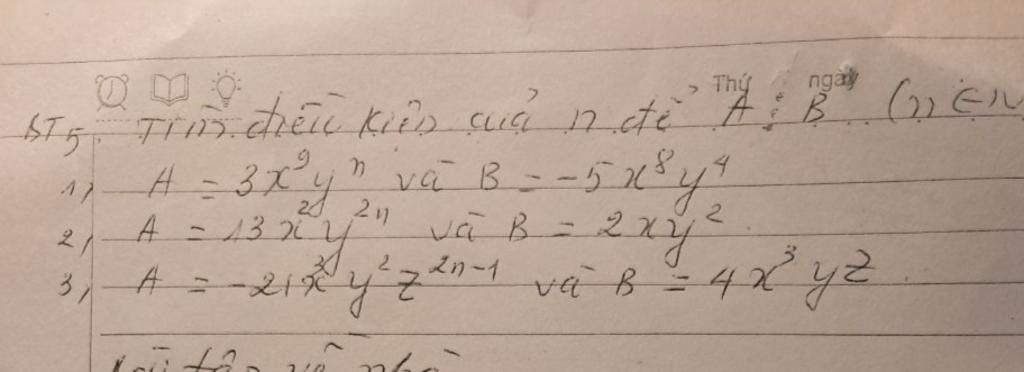 Thứ ngày
BT5. Tìm điều kiện của n để A ⋮ B (n ∈ N
1, A = 3x⁹yⁿ và B = -5x⁸y⁴
2, A = 13x²y²ⁿ và B = 2xy²
3, A = -21x³y²z²ⁿ⁻¹ và B = 4x³yz.
Bài tập về nhà